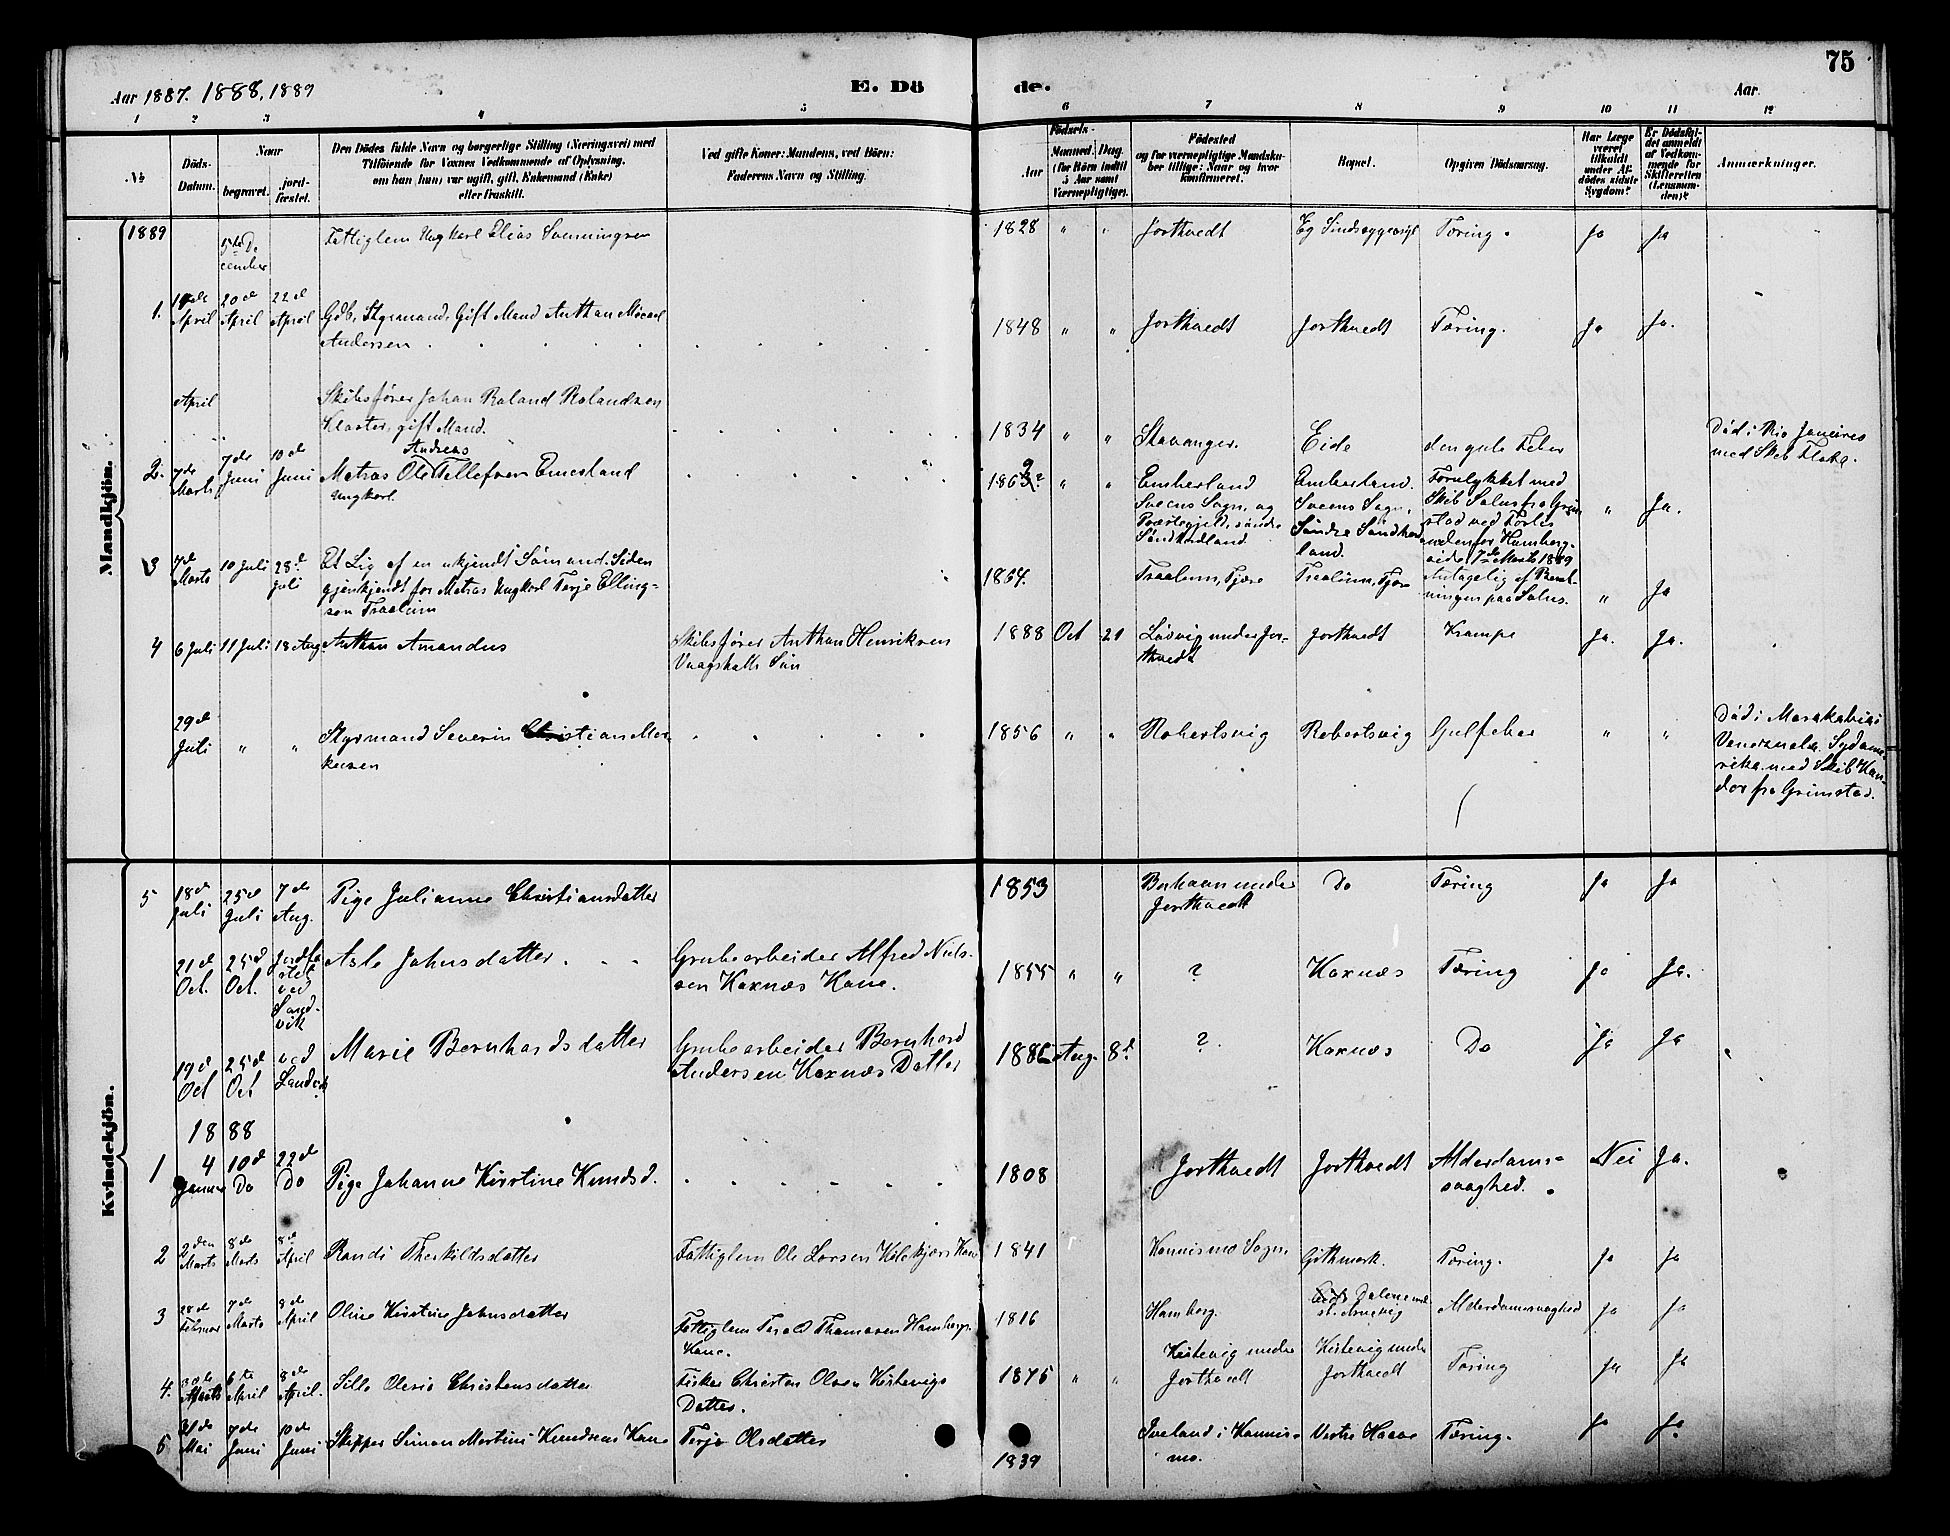 75
Aar 1887. 1888, 1889
E. Dö
de.
Aar.
1 2 3 4 5 6 7 8 9 10 11 12
№
Döds-Datum.
Naar
begravet.
jord-fæstet.
Den Dödes fulde Navn og borgerlige Stilling (Næringsvei) med
Tilföiende for Voxnes Vedkommende af Oplysning,
om han (hun) var ugift, gift, Enkemand (Enke)
eller fraskilt.
Ved gifte Koner: Mandens, ved Börn:
Faderens Navn og Stilling.
Födsels-
Aar
Maaned. Dag.
(for Börn indtil
5 Aar samt
Værnepligtige).
Födested
og for værnepligtige Mandskaber tillige: Naar og hvor
konfirmeret.
Bopæl.
Opgiven Dödsaarsag.
Har Læge
været
tilkaldt
under Afdödes sidste
Sygdom?
Er Dödsfaldet anmeldt
af Vedkommende for
Skifteretten
(Lensmanden)?
Anmærkninger.
Mandkjön.
1889
5te De
cember
Fattiglem Ungkarl Elias Svenningsen
1828 " " Jorthvedt
Eg Sindssygeasyl
Tæring.
Ja Ja
1.
April
20de April
22de April
Gdb. Styrmand, Gift Mand Anthan
Andersen
1848 " " Jorthvedt Jorthvedt Tæring. Ja Ja.
April
Skibsfører Johan Roland Rolandsen
Kloster, gift Mand.
1834 " " Stavanger. Eide den gule Feber
Död i Rio Janeiro
med Skib
2.
7de Marts
7de Juni
10de Juni
Andreas
Matros Ole Tellefsen
Ungkarl.
" "
Emberland
Sveens Sogn, og
Præstegjeld, søndre
Søndhordland
Emberland.
Sveens Sogn,
Søndre Søndhordland.
Forulykket med
Skib Salus fra Grimstad ved
udenfor Hambergeide 7de Marts 1889
" Ja.
3
7de Marts
10 Juli
28de Juli
Et Lig af en ukjendt Sømand. Siden
gjenkjendt for Matros Ungkarl Terje Ellingsen Traalum
1864. Traalum, Tjøre Traalum, Tjøre
Antagelig af Besætningen paa Salus.
" Ja
4 6 Juli 11 Juli 18 Aug. Anthan Amandus
Skibsfører Anthan Henriksen
Vaagsholts Søn
1888 Oct 21
Løsvig under Jorthvedt
Jorthvedt Krampe Ja. Ja.
29de
Juli " "
Styrmand Severin Christian
1856 " " Robertsvig Robertsvig Gulfeber " "
Död i Marakaibo i
Venezuela. Sydamerika med Skib
fra Grimstad.
Kvindekjön.
5
18de Juli
25de Juli
7de Aug.
Pige Julianne Christiansdatter
1853
under
Jorthvedt
Do Tæring Ja Ja
21de Oct.
25de Oct.
Jordfæstet
ved
Landvik
Asle Johnsdatter
Grubearbeider Alfred Nielssen Kaxnæs Kone.
1855 " " ? Kaxnæs Tæring Ja Ja.
19de Oct
25de Oct
ved Landvik
Marie Bernhardsdatter
Grubearbeider Bernhard
Andersen Kaxnæs Datter
Aug. 8de ? Kaxnæs Do Ja Ja
1888
1
4 Januar
10de Do
22de Do
Pige Johanne Kirstine Knudsd.
1808 Jorthvedt Jorthvedt
Alderdomssvaghed.
Nei Ja.
2
2den Marts
8de Marts
8de April
Randi Thorkildsdatter
Fattiglem Ole Larsen Kolekjærs Kone
1841
Sogn.
Githmark. Tæring. Ja Ja
3
28de Februar
7de Marts
8de April
Oline Kirstine Johnsdatter
Fattiglem Terald Thomassen Hambergs
Kone.
1816 Hamberg.
Dalene
Alderdomssvaghed Ja Ja
4.
30te Marts
6te April
8de April.
Sille Olesia Christensdatter
Fisker Christen Olsen Kistevigs
Datter.
1875 " "
Kistevig under
Jorthvedt
Kistevig under
Jorthvedt
Tæring Ja Ja
5
Mai
7de Juni
10de Juni
Skipper Simon Martini Knudsens Kone
Terje Olsdatter
1839
Iveland i
Vestre Tæring. Ja Ja